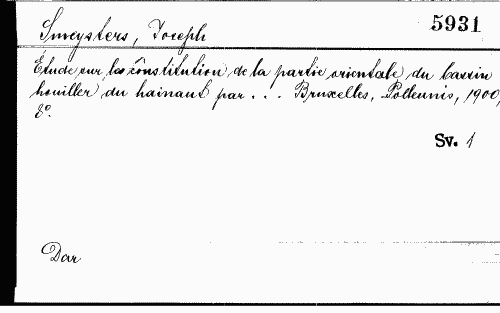 5931
Smeysters, Joseph
Étude sur la constitution de la partie orientale du bassin
houiller du hainaut par . . . Bruxelles, Polleunis, 1900,
8°.
Sv. 1
Dar